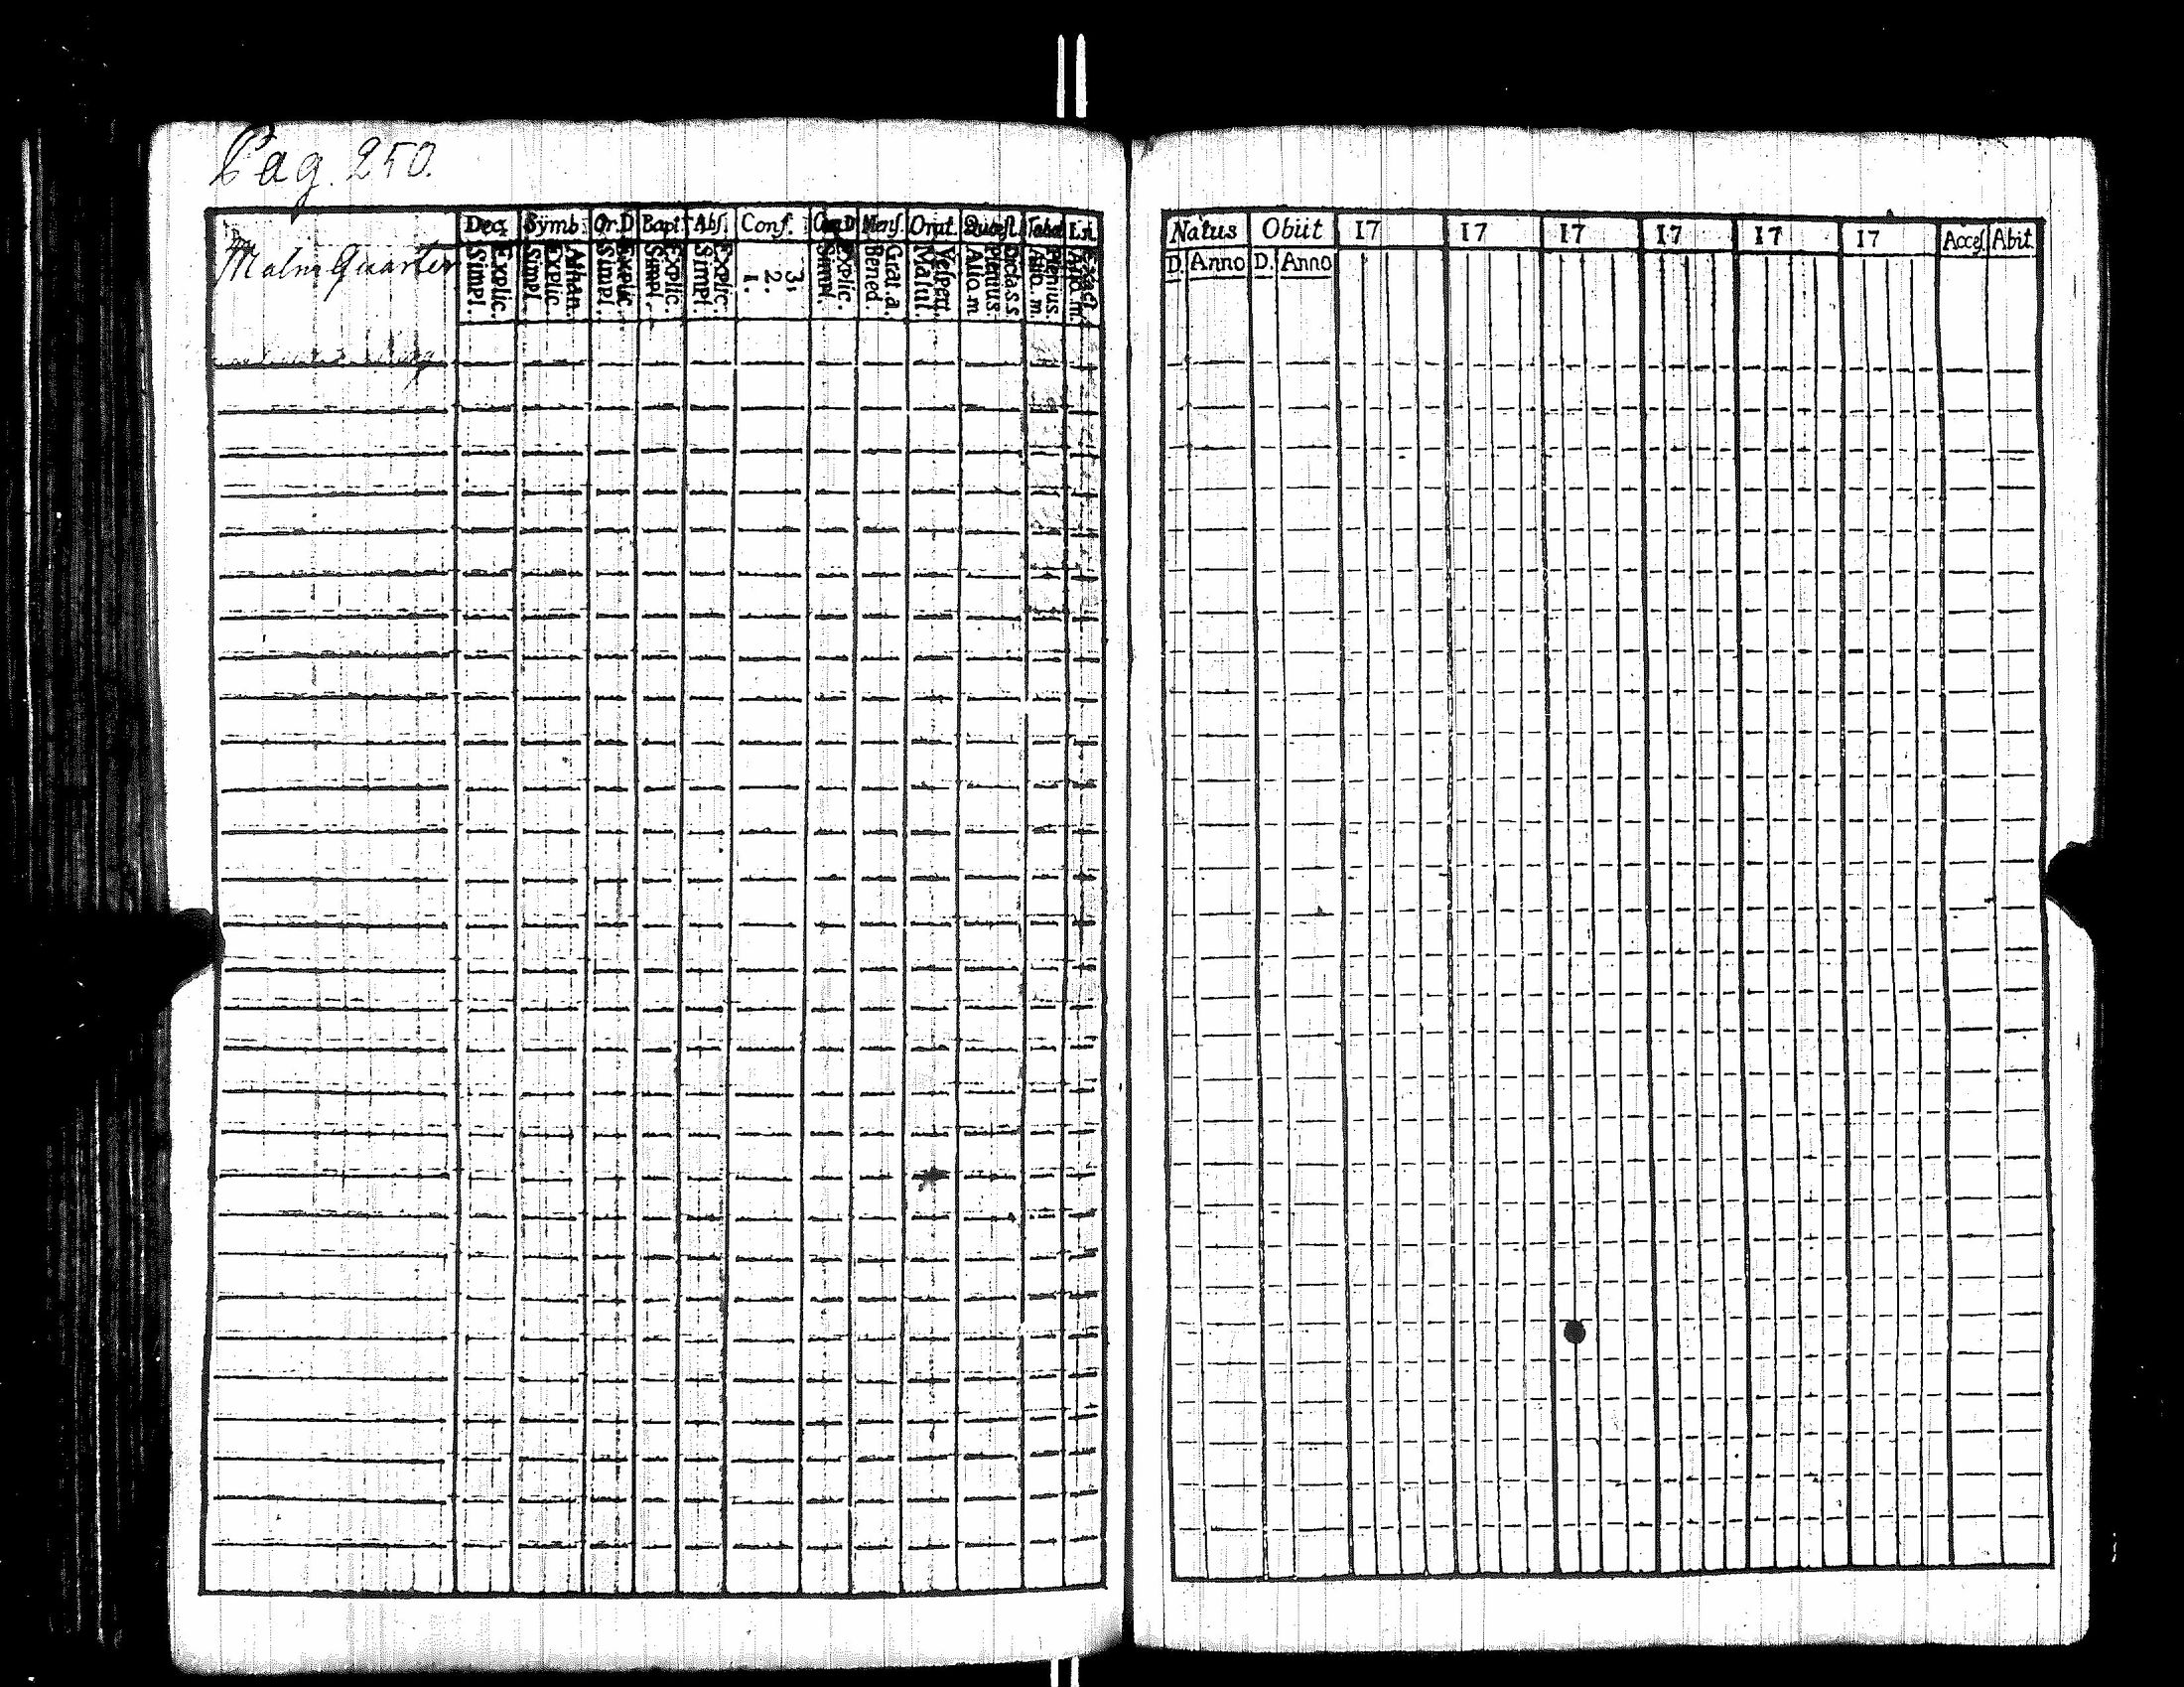 Pag. 250.
Malm Quarter
Dec. Symb. Or.D Bapt. Abs. Conf. Mens. Orat. Quæst. Tabul
Simpl. Explic.
Simpl. Explic. Athan.
Simpl. Explic.
Simpl. Explic.
Simpl. Explic.
1. 2. 3.
Simpl. Explic.
Bened. Grat.a.
Matut. Vespert.
Alio.m Plenius. Dicta.s.s
Alio.m. Plenius.
Alio.m. Exact.
Natus Obiit 17 17 17 17 17 17 Acces. Abit.
D. Anno D. Anno